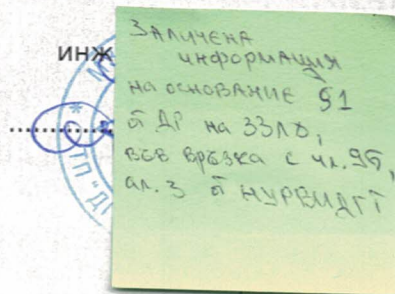 ИНЖ
ЗАЛИЧЕНА
ИНФОРМАЦИЯ
НА ОСНОВАНИЕ §1
от ДР на ЗЗЛД,
във връзка с чл. 95,
ал. 3 от НУРВИДГТ
ТП "ДГ